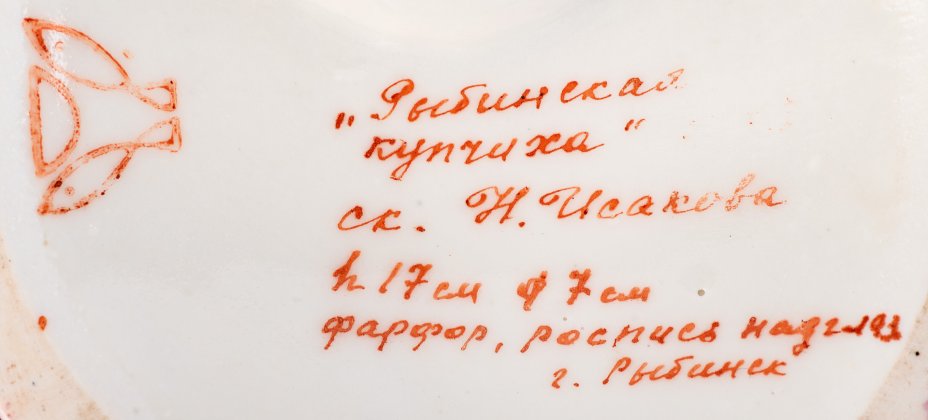 „Рыбинская
купчиха"
ск. Н. Исакова
h 17 см ф 7 см
фарфор, роспись надгл
г. Рыбинск